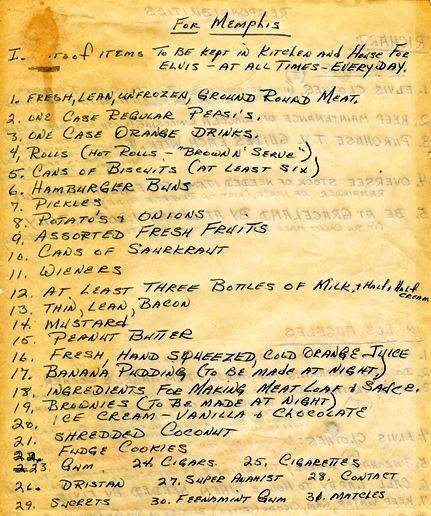 For Memphis
I. of items to be kept in Kitchen and House For
Elvis - at all times - every day.
1. Fresh, lean, unfrozen, ground round meat.
2. one case regular Pepsi's.
3. one case orange drinks.
4, Rolls (Hot Rolls - "Brown N' Serve")
5. Cans of Biscuits (at least six)
6. Hamburger Buns
7. Pickles
8. Potato's & Onions
9. Assorted Fresh Fruits
10. Cans of Saurkraut
11. Wieners
12. At least three bottles of milk, & Half & Half cream
13. Thin, lean, Bacon
14. Mustard
15. Peanut Butter
16. Fresh, hand squeezed, cold orange-juice
17. Banana Pudding (to be made at night)
18. Ingredients for making meat loaf & sauce.
19. Brownies (to be made at night)
20. Ice cream - vanilla & chocolate
21. Shredded Coconut
22. Fudge Cookies
23 Gum 24. Cigars 25. Cigarettes
26. Dristan 27. Super Anahist 28. Contact
29. Sucrets 30. Feenamint Gum 31. Matches